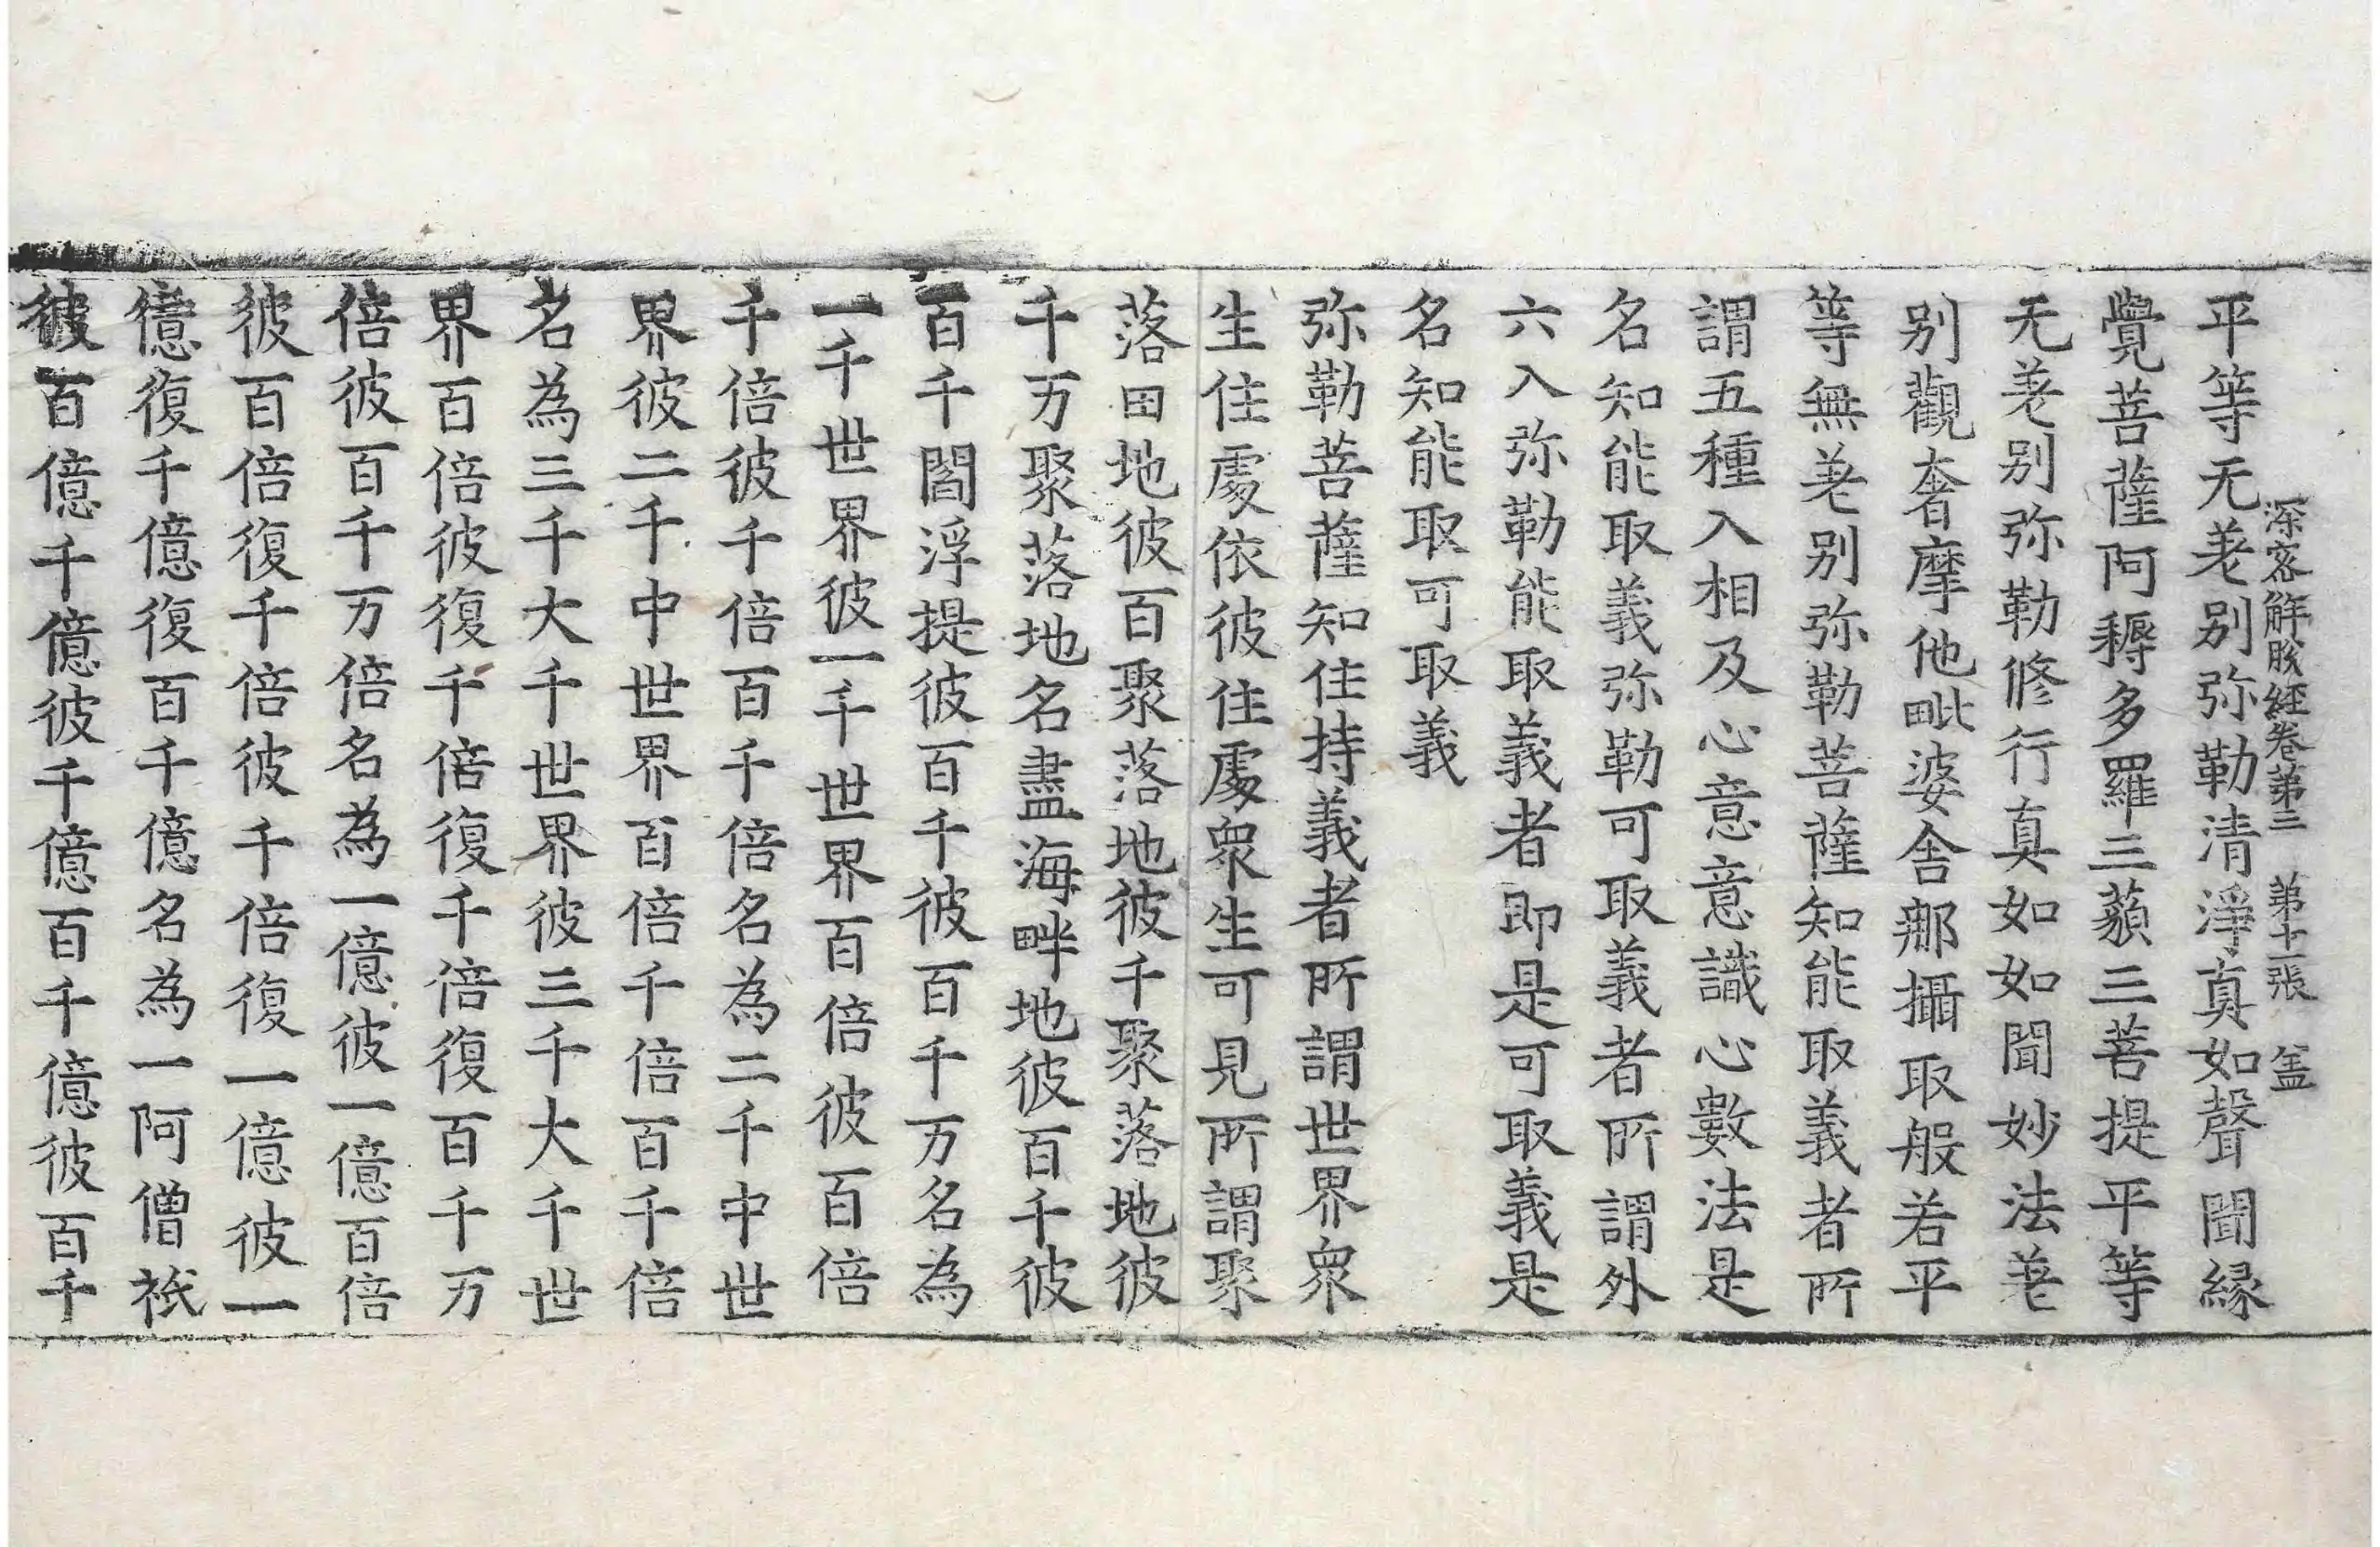 深密解脫經卷第三 第十一張 盖
平等无差别弥勒清淨真如聲聞緣
覺菩薩阿耨多羅三藐三菩提平等
无差别弥勒修行真如如聞妙法差
别觀奢摩他毗婆舍那攝取般若平
等無差别弥勒菩薩知能取義者所
謂五種入相及心意意識心數法是
名知能取義弥勒可取義者所謂外
六入弥勒能取義者即是可取義是
名知能取可取義
弥勒菩薩知住持義者所謂世界衆
生住處依彼住處衆生可見所謂聚
落田地彼百聚落地彼千聚落地彼
千万聚落地名盡海畔地彼百千彼
百千閻浮提彼百千彼百千万名為
一千世界彼一千世界百倍彼百倍
千倍彼千倍百千倍名為二千中世
界彼二千中世界百倍千倍百千倍
名為三千大千世界彼三千大千世
界百倍彼復千倍復千倍復百千万
倍彼百千万倍名為一億彼一億百倍
彼百倍復千倍彼千倍復一億彼一
億復千億復百千億名為一阿僧祇
彼百億千億彼千億百千億彼百千